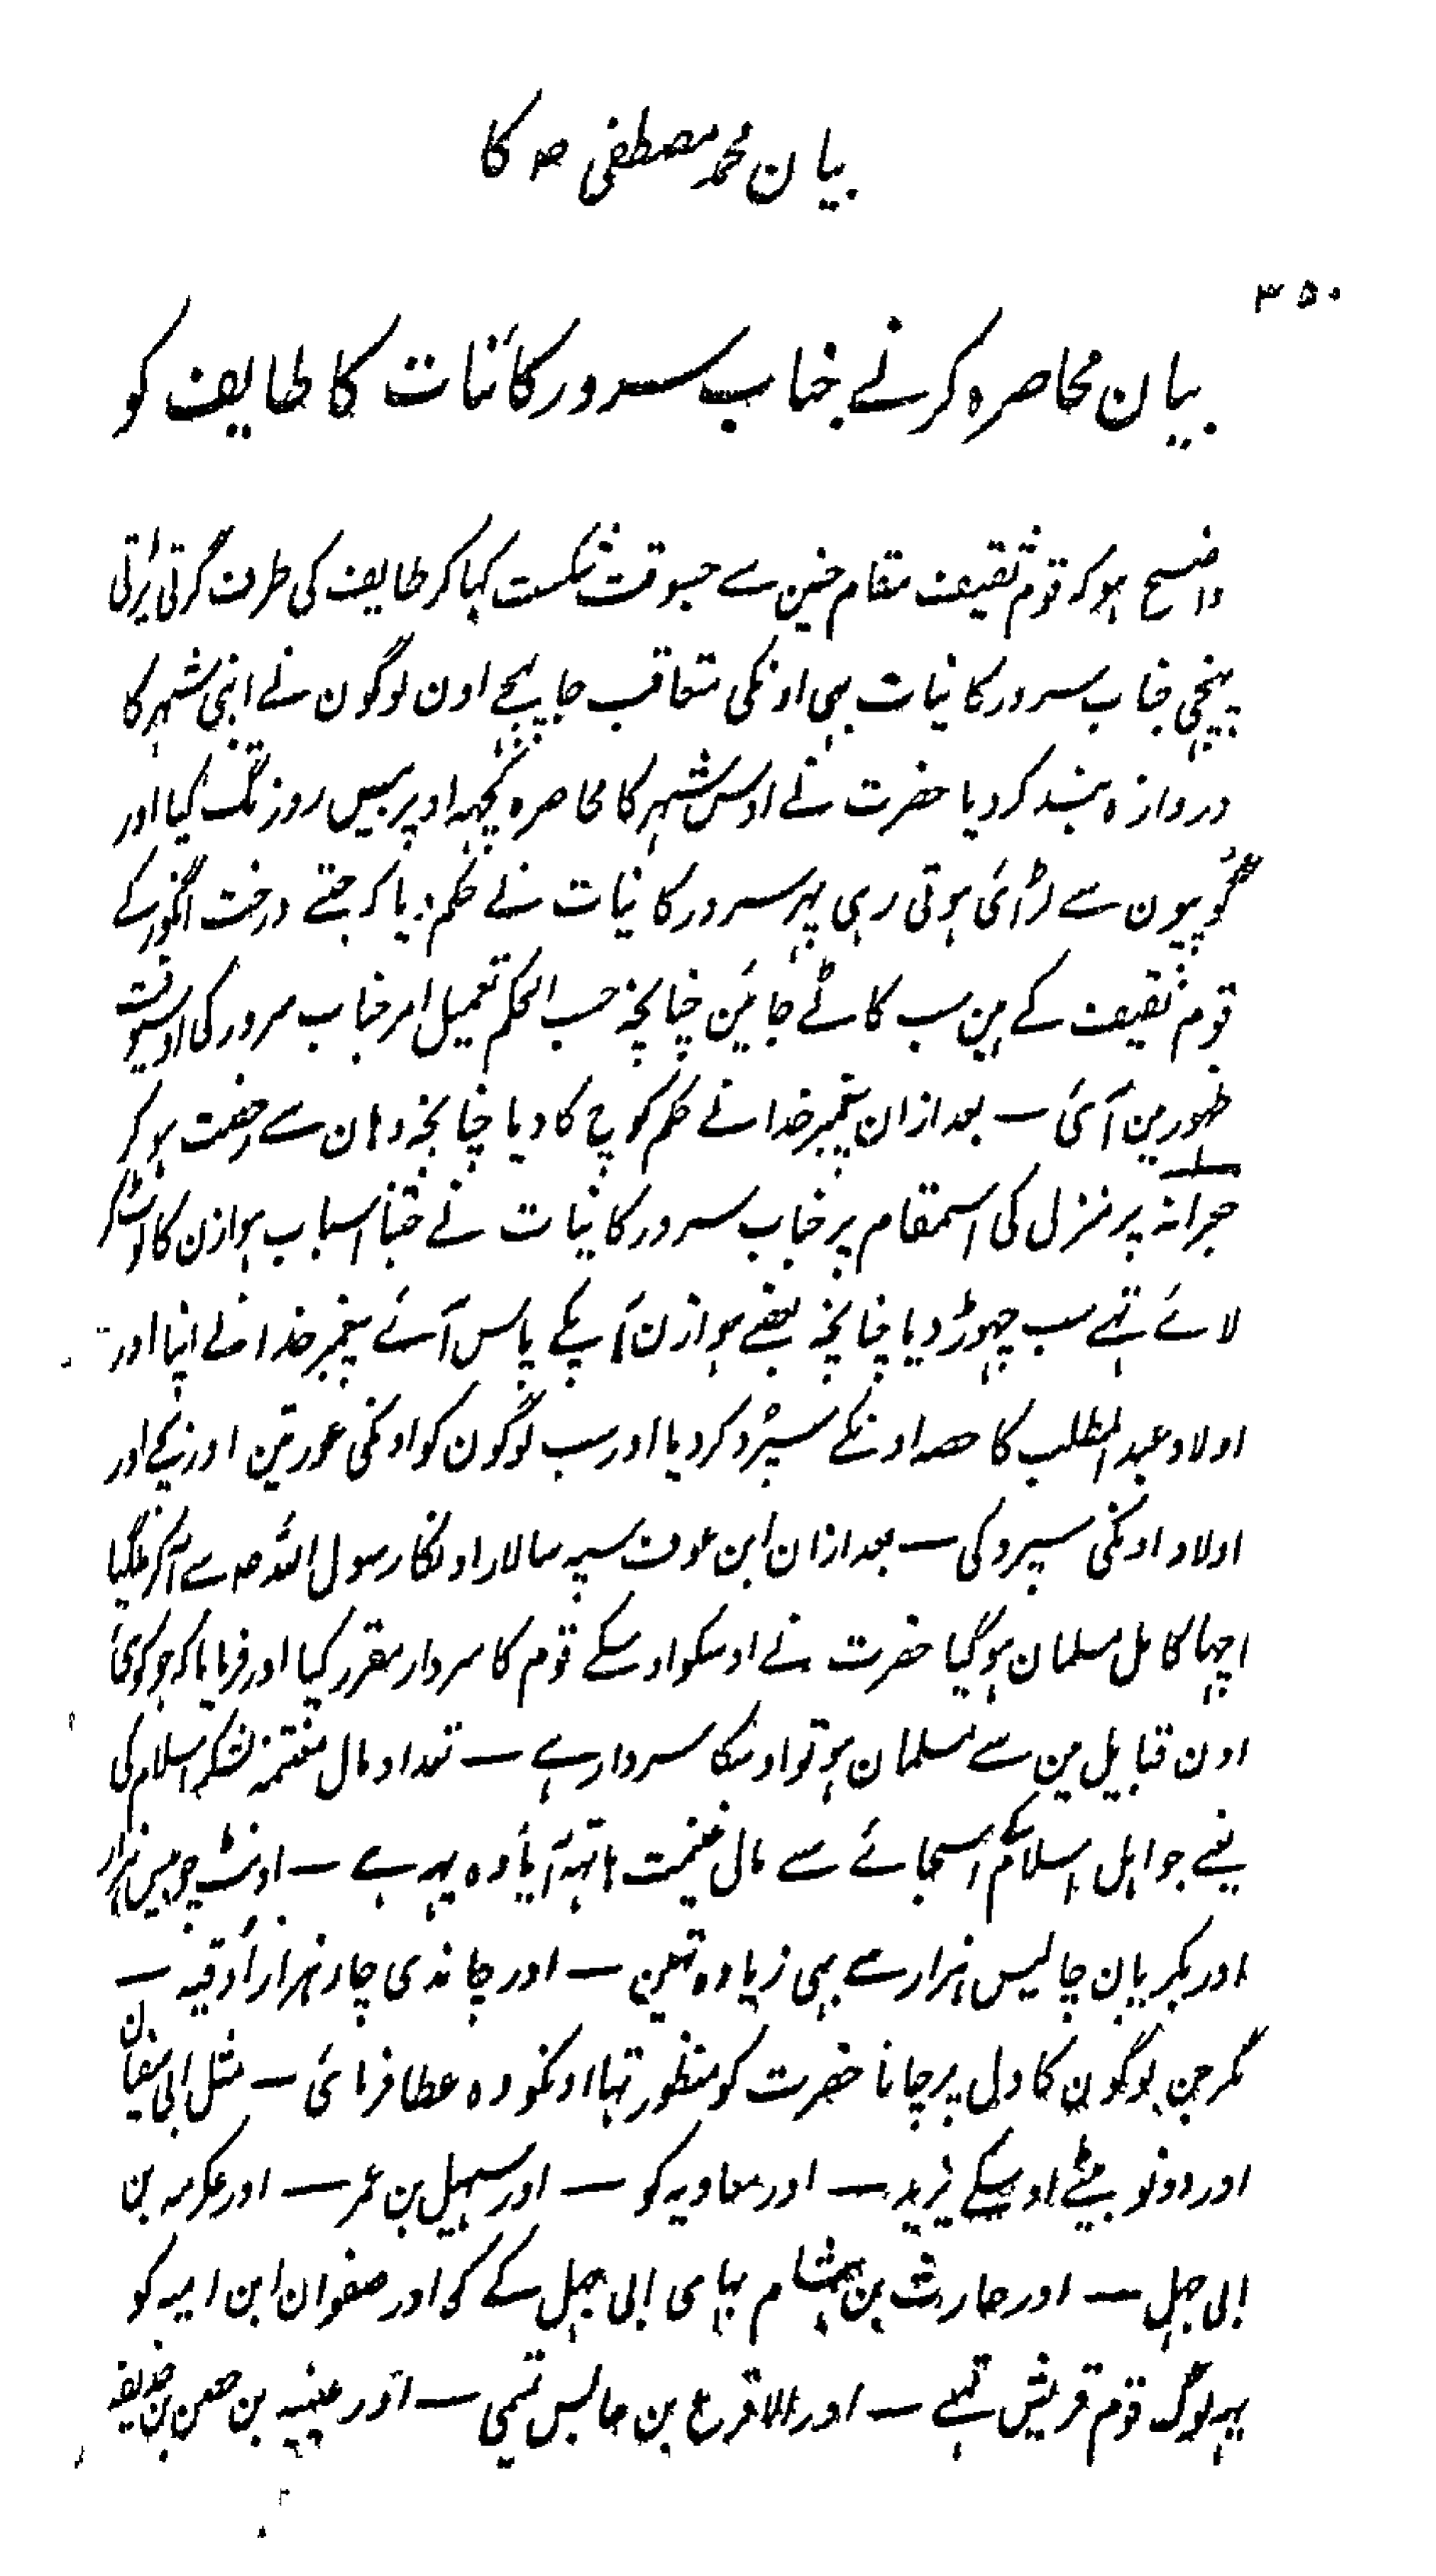 بیان محمد مصطفی ص کا
۳۵۰
بیان محاصرہ کرنے جناب سرور کائنات کا طایف کو
واضح ہو کہ قوم ثقیف مقام حنین سے جسوقت شکست کہا کر طایف کی طرف گرتی پڑتی
پہنچی جناب سرور کاینات بہی اونکی متعاقب جا پہنچے اون لوگون نے اپنی شہر کا
دروازہ بند کر دیا حضرت نے اوس شہر کا محاصرہ کچہہ اوپر بیس روز تک کیا اور
گوپیون سے لڑائی ہوتی رہی پہر سرور کاینات نے حکم دیا کہ جتنے درخت انگور کے
قوم ثقیف کے ہین سب کاٹے جائین چنانچہ حسب الحکم تعمیل امر جناب سرور کی اوسیوقت
ظہور مین آئی — بعد ازان پیغمبر خدا نے حکم کوچ کا دیا چنانچہ وہان سے رخصت ہو کر
جعرانہ پر منزل کی اسمقام پر جناب سرور کاینات نے جتنا اسباب ہوازن کا لوٹ کر
لائے تہے سب چہوڑ دیا چنانچہ بعضے ہوازن آپکے پاس آئے پیغمبر خدا نے اپنا اور
اولاد عبد المطلب کا حصہ اونکے سپرد کر دیا اور سب لوگون کو اونکی عورتین اور بچے اور
اولاد اونکی سپرد کی — بعد ازان ابن عوف سپہ سالار اونکا رسول اللہ ص سے آکر ملگیا
اچہا کامل مسلمان ہو گیا حضرت نے اوسکو اوسکے قوم کا سردار مقرر کیا اور فرمایا کہ جو کوئی
اون قبایل مین سے مسلمان ہو تو اونکا سردار ہے — تعداد مال مغتنمہ لشکر اسلام کی
یعنے جو اہل اسلام کے اسجائے سے مال غنیمت ہاتہہ آیا وہ یہہ ہے — اونٹ چوبیس ہزار
اور بکریان چالیس ہزار سے بہی زیادہ تہین — اور چاندی چار ہزار اوقیہ —
مگر جن لوگون کا دل پرچانا حضرت کو منظور تہا اونکو وہ عطا فرمائی — مثل ابی سفیان
اور دونو بیٹے اوسکے یزید — اور معاویہ کو — اور سہیل بن عمر — اور عکرمہ بن
ابی جہل — اور حارث بن ہشام بہای ابی جہل کے کو اور صفوان ابن امیہ کو
یہہ لوگ قوم قریش تہے — اور الاقرع بن حابس تمیمی — اور عینیہ بن حصن بن حذیفہ